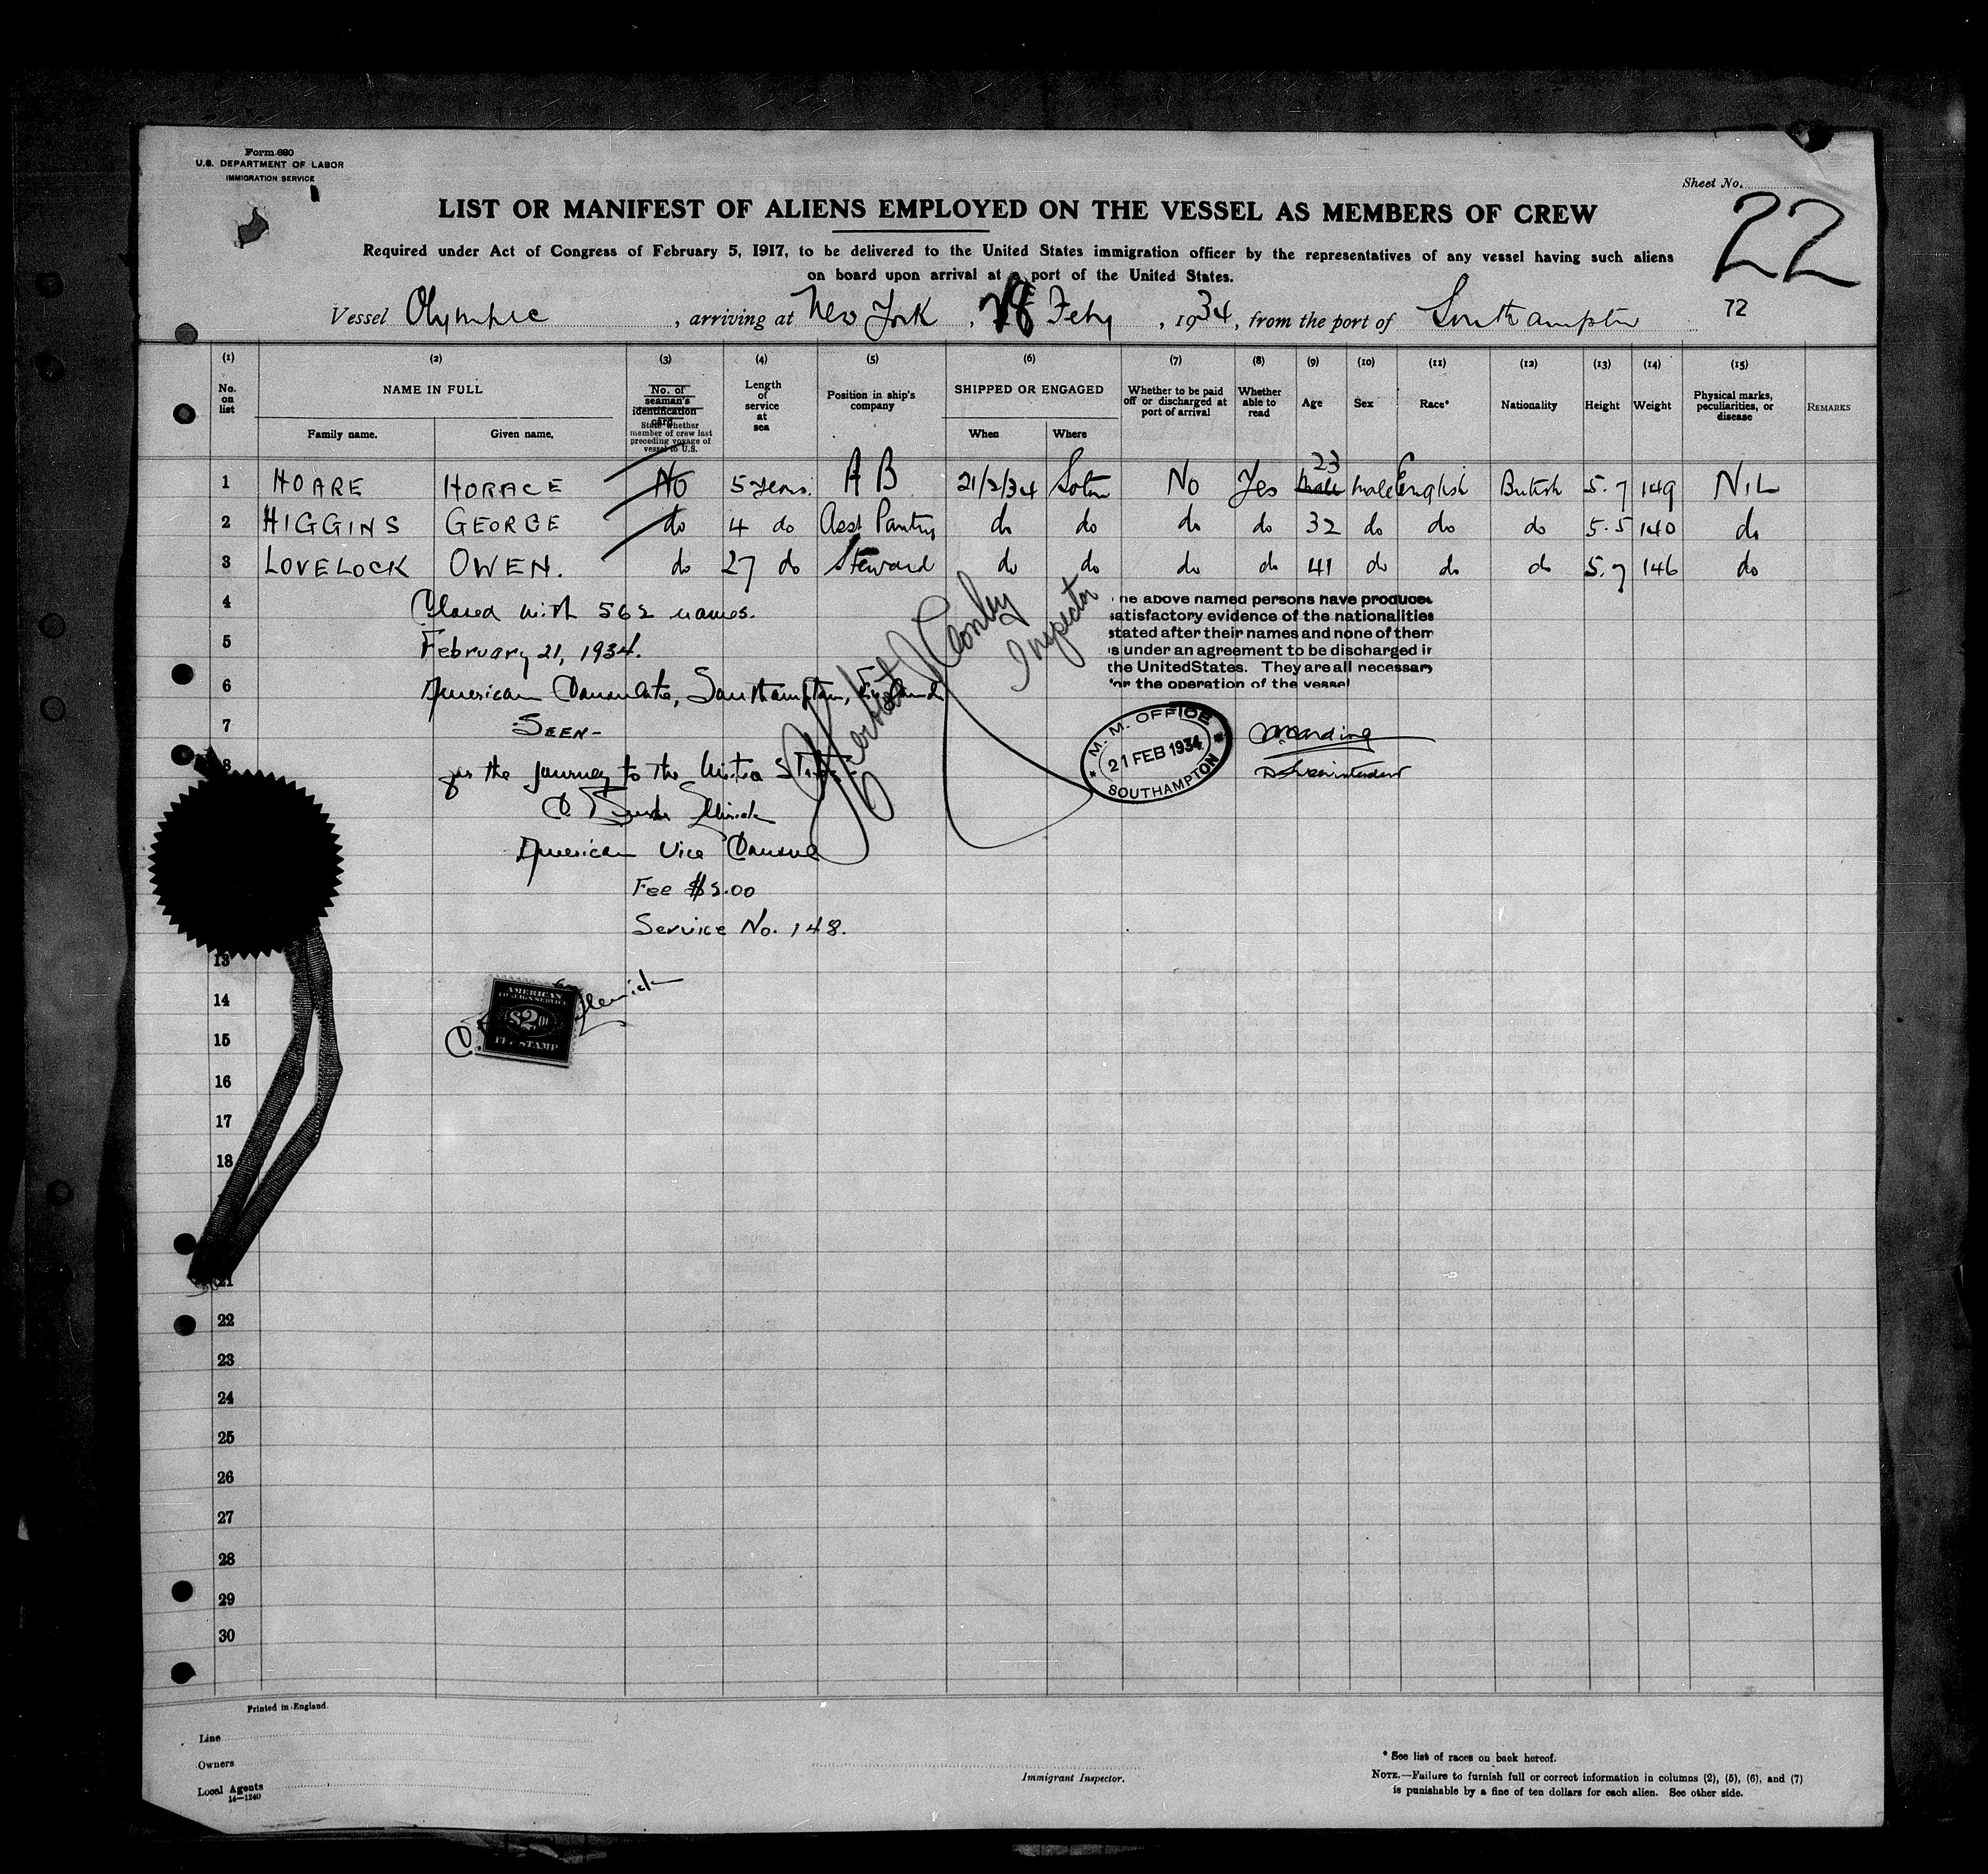 Form 680
U.S. DEPARTMENT OF LABOR
IMMIGRATION SERVICE
Sheet No.
22
LIST OR MANIFEST OF ALIENS EMPLOYED ON THE VESSEL AS MEMBERS OF CREW
Required under Act of Congress of February 5, 1917, to be delivered to the United States immigration officer by the representatives of any vessel having such aliens
on board upon arrival at a port of the United States.
Vessel Olympic, arriving at New York, 28 Feby, 1934, from the port of Southampton 72
(1) (2) (3) (4) (5) (6) (7) (8) (9) (10) (11) (12) (13) (14) (15)
No. on list NAME IN FULL Family name. Given name. No. of seaman's identification card State whether member of crew last preceding voyage of vessel to U.S. Length of service at sea Position in ship's company SHIPPED OR ENGAGED When Where Whether to be paid off or discharged at port of arrival Whether able to read Age Sex Race* Nationality Height Weight Physical marks, peculiarities, or disease REMARKS
1 HOARE HORACE No 5 years. A B 21/2/34 Soton No Yes male 23 male English British 5.7 149 NIL
2 HIGGINS GEORGE do 4 do Asst Pantry do do do do 32 do do do 5.5 140 do
3 LOVELOCK OWEN. do 27 do Steward do do do do 41 do do do 5.7 146 do
4 Closed with 562 names.
5 February 21, 1934.
6 American Consulate, Southampton, England
7 SEEN-
8 for the journey to the United States
American Vice Consul
Fee $2.00
Service No. 148.
Inspector
he above named persons have produced
satisfactory evidence of the nationalities
stated after their names and none of them
is under an agreement to be discharged in
the United States. They are all necessary
for the operation of the vessel
M. M. OFFICE
21 FEB 1934
SOUTHAMPTON
Superintendent
13
14
AMERICAN
FOREIGN SERVICE
$2.00
FEE STAMP
15
16
17
18
21
22
23
24
25
26
27
28
29
30
Printed in England.
Line
Owners
Local Agents
14—1240
Immigrant Inspector.
* See list of races on back hereof.
NOTE.—Failure to furnish full or correct information in columns (2), (5), (6), and (7)
is punishable by a fine of ten dollars for each alien. See other side.